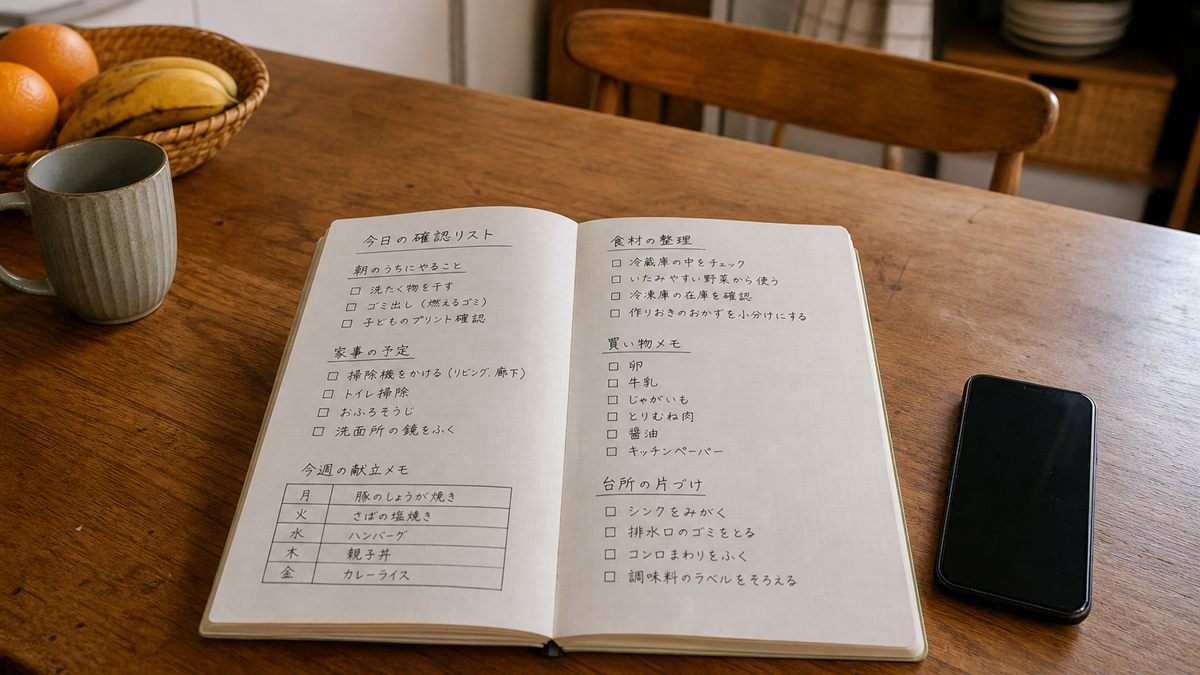 今日の確認リスト
朝のうちにやること
□ 洗たく物を干す
□ ゴミ出し（燃えるゴミ）
□ 子どものプリント確認
家事の予定
□ 掃除機をかける（リビング、廊下）
□ トイレ掃除
□ おふろそうじ
□ 洗面所の鏡をふく
今週の献立メモ
月 豚のしょうが焼き
火 さばの塩焼き
水 ハンバーグ
木 親子丼
金 カレーライス
食材の整理
□ 冷蔵庫の中をチェック
□ いたみやすい野菜から使う
□ 冷凍庫の在庫を確認
□ 作りおきのおかずを小分けにする
買い物メモ
□ 卵
□ 牛乳
□ じゃがいも
□ とりむね肉
□ 醤油
□ キッチンペーパー
台所の片づけ
□ シンクをみがく
□ 排水口のゴミをとる
□ コンロまわりをふく
□ 調味料のラベルをそろえる